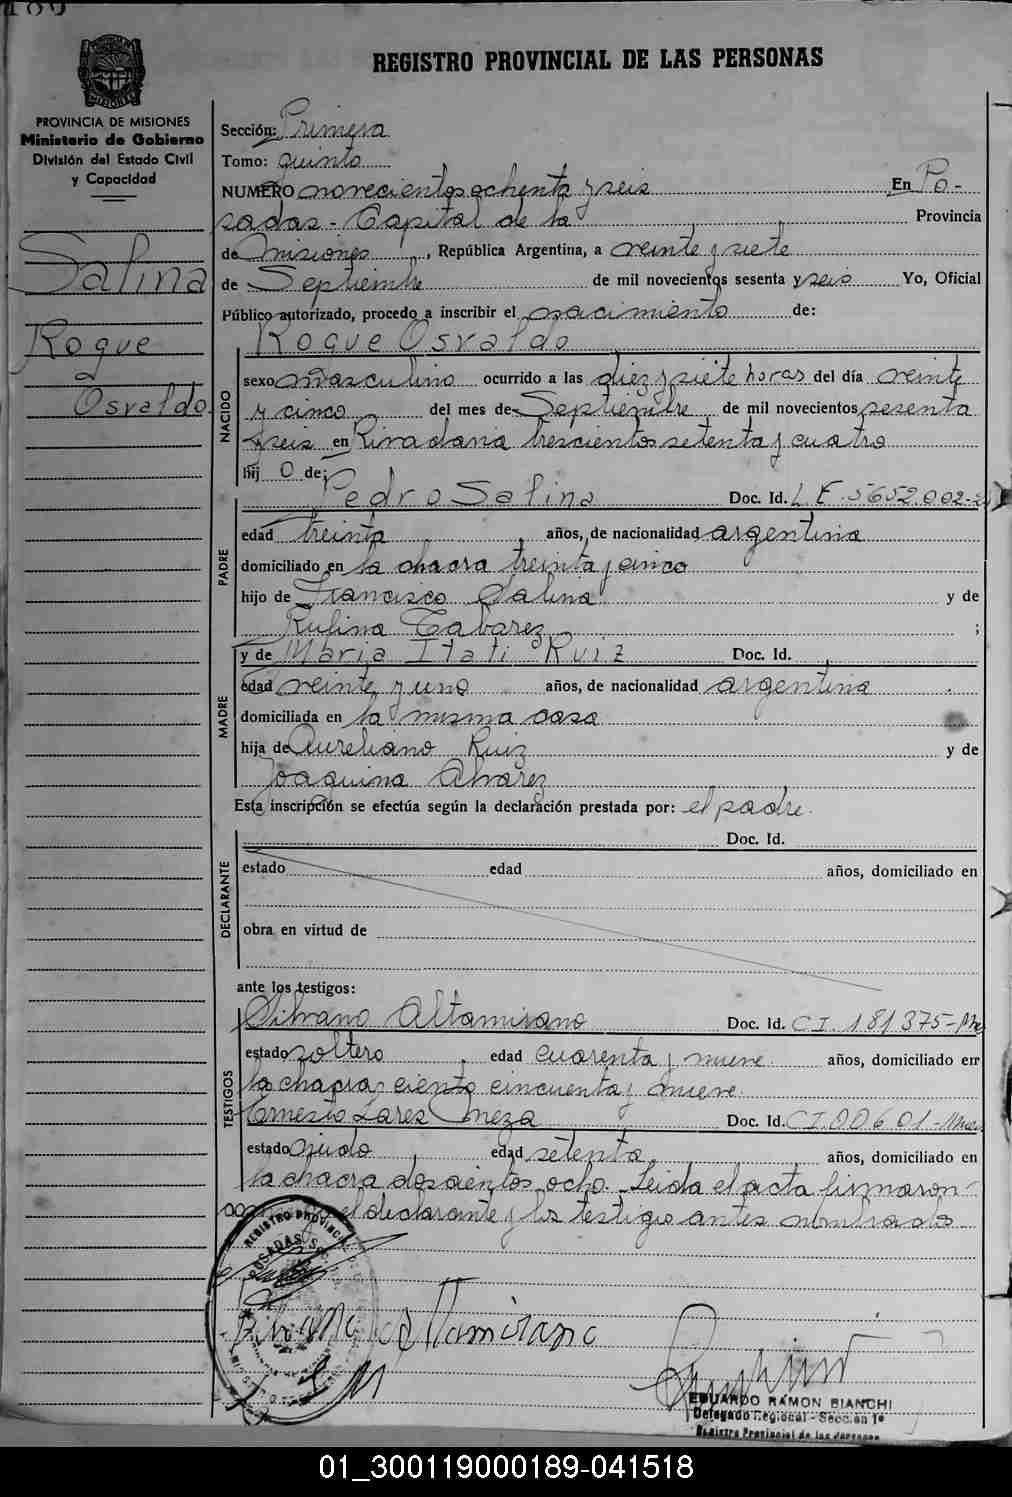 REGISTRO PROVINCIAL DE LAS PERSONAS
PROVINCIA DE MISIONES
Ministerio de Gobierno
División del Estado Civil
y Capacidad
Salina
Roque
Osvaldo
Sección: Primera
Tomo: quinto
NUMERO novecientos ochenta y seis En Po-
sadas - Capital de la Provincia
de Misiones, República Argentina, a veinte y siete
de Septiembre de mil novecientos sesenta y seis Yo, Oficial
Público autorizado, procedo a inscribir el nacimiento de:
Roque Osvaldo
NACIDO
sexo masculino ocurrido a las diez y siete horas del día veinte
y cinco del mes de Septiembre de mil novecientos sesenta
y seis en Rivadavia trescientos setenta y cuatro
hij o de:
Pedro Salina Doc. Id. L.E. 5652.002
PADRE
edad treinta años, de nacionalidad argentina
domiciliado en la chacra treinta y cinco
hijo de Francisco Salina y de
Rufina Tabarez ;
y de Maria Itati Ruiz Doc. Id.
MADRE
edad veinte y uno años, de nacionalidad argentina
domiciliada en la misma casa
hija de Aureliano Ruiz y de
Joaquina Alvarez
Esta inscripción se efectúa según la declaración prestada por: el padre.
Doc. Id.
DECLARANTE
estado edad años, domiciliado en
obra en virtud de
ante los testigos:
Silvano Altamirano Doc. Id. C.I. 181375
TESTIGOS
estado soltero edad cuarenta y nueve años, domiciliado en
la chacra ciento cincuenta y nueve.
Ernesto Lares Meza Doc. Id. C.I. 00601
estado viudo edad setenta años, domiciliado en
la chacra doscientos ocho. Leida el acta firmaron
el declarante y los testigos antes nombrados
REGISTRO PROVINCIAL
POSADAS
Altamirano
EDUARDO RAMON BIANCHI
Delegado Regional - Sección 1ª
Registro Provincial de las Personas
01_300119000189-041518